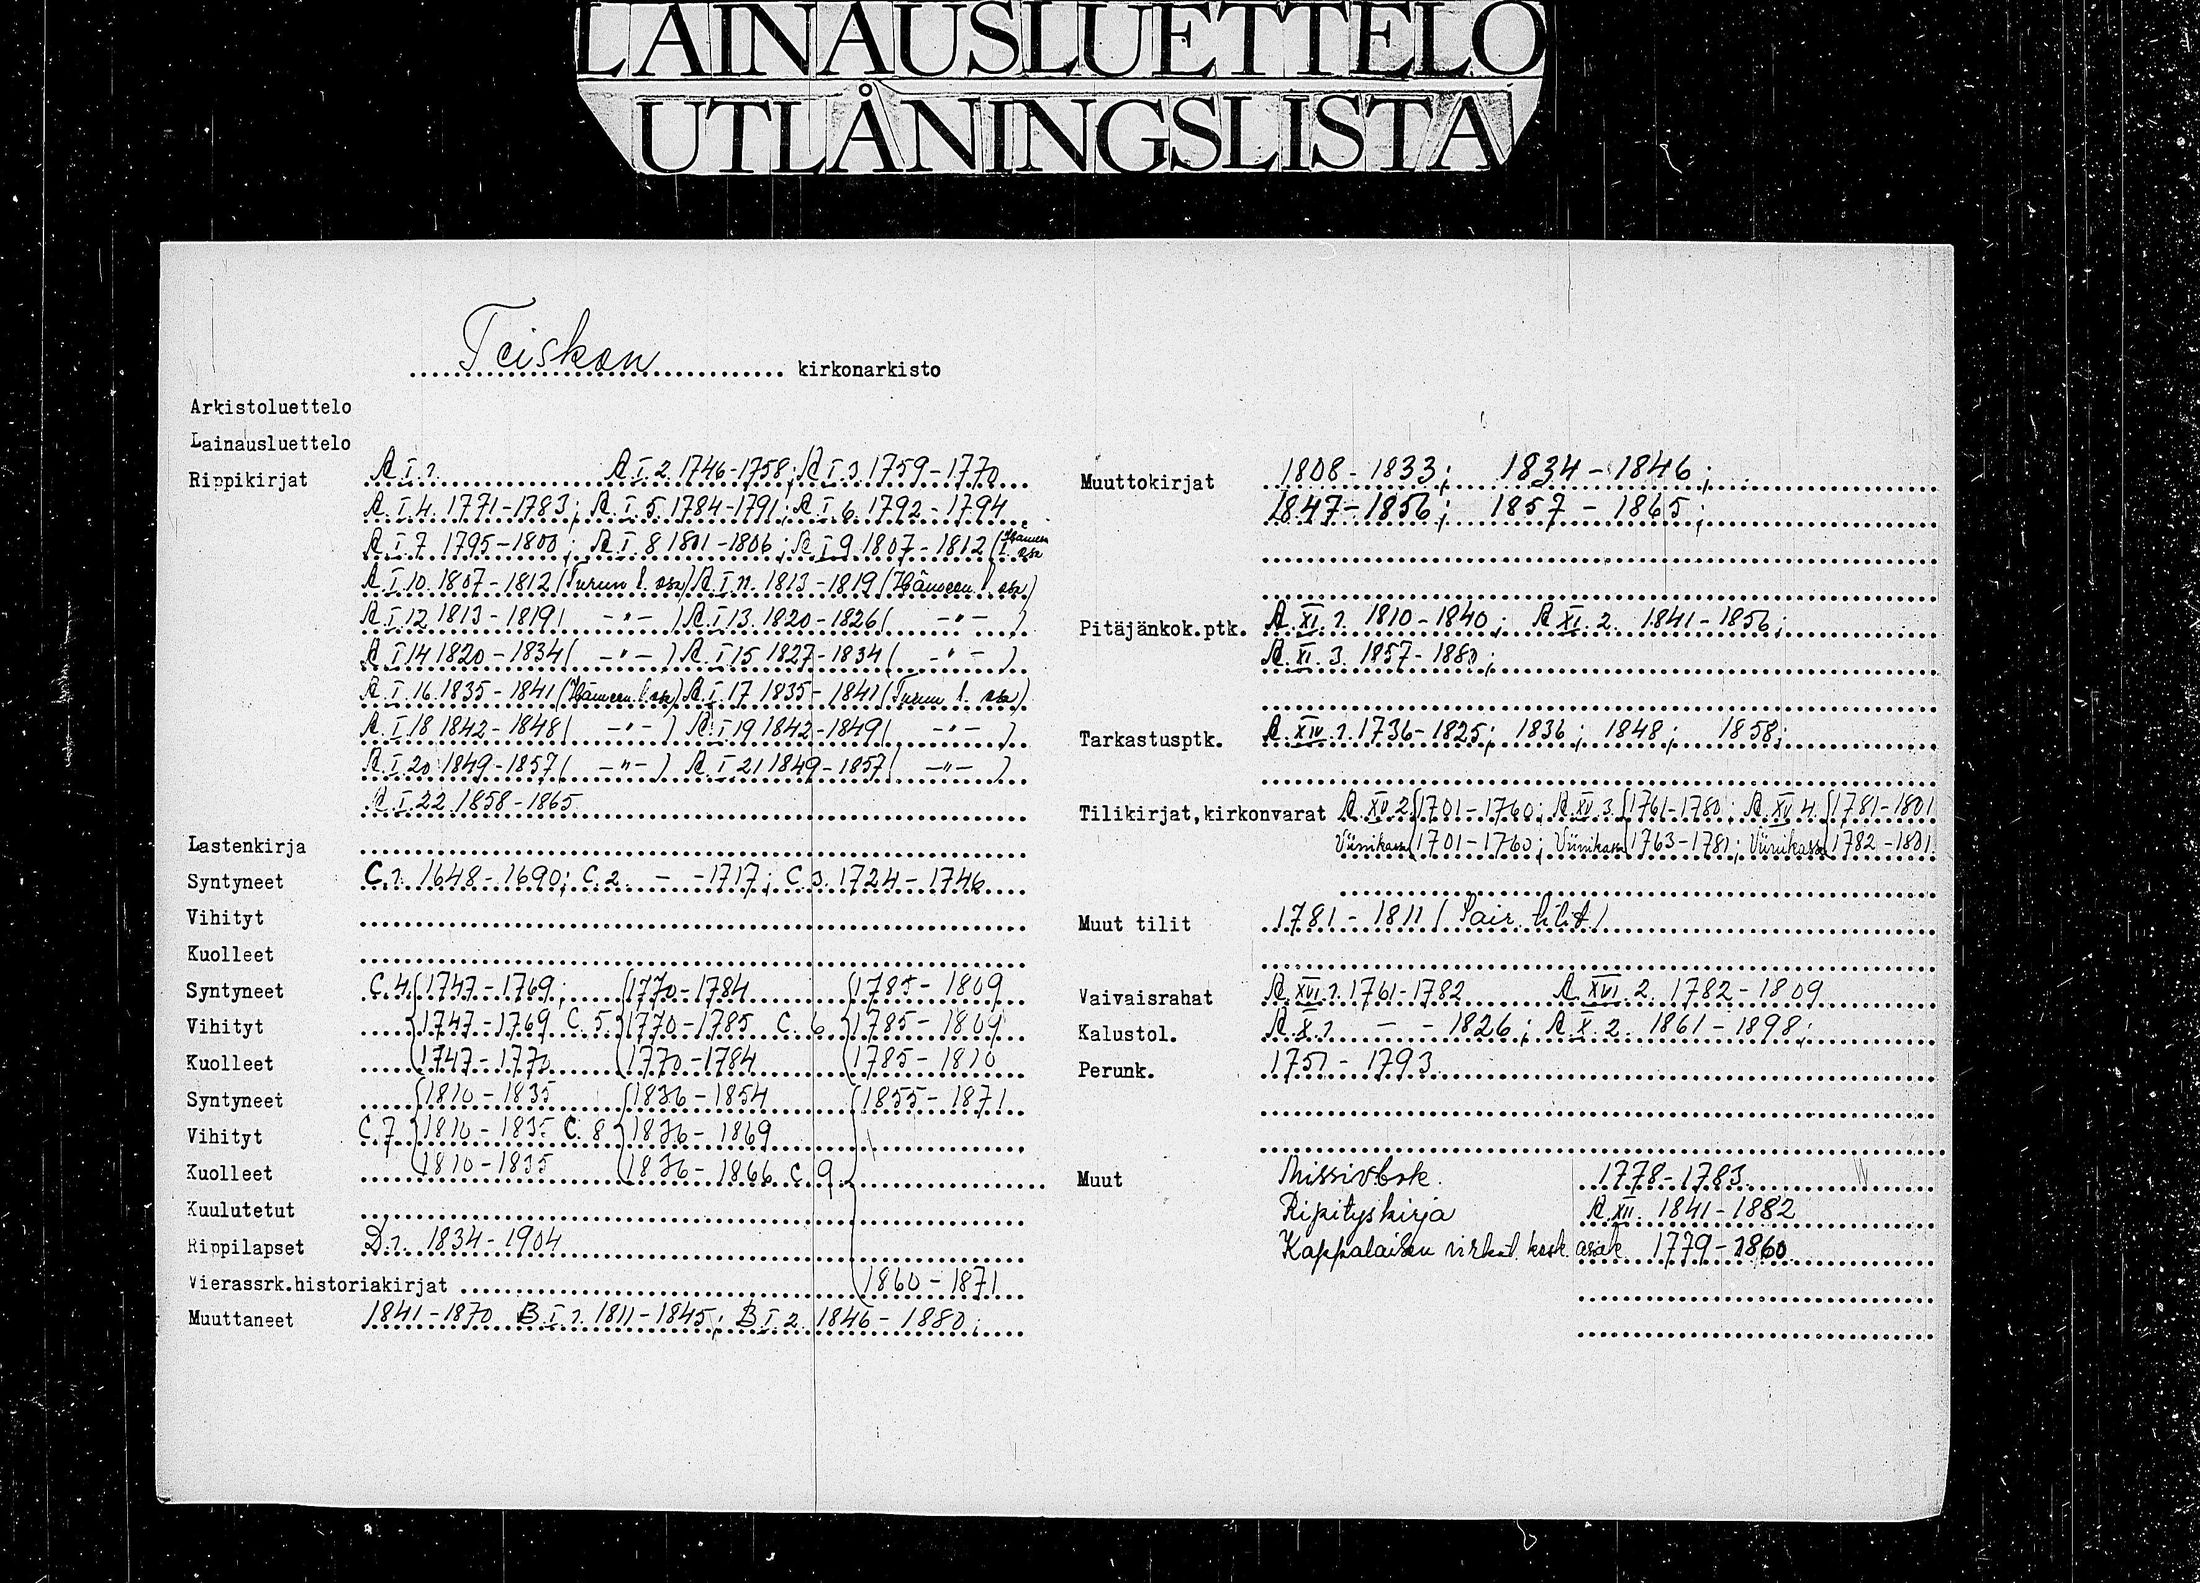 LAINAUSLUETTELO
UTLÅNINGSLISTA
Teiskon kirkonarkisto
Arkistoluettelo
Lainausluettelo
Rippikirjat A.I.1. A.I.2. 1746-1758; A.I.3. 1759-1770
A.I.4. 1771-1783; A.I.5. 1784-1791; A.I.6. 1792-1794
A.I.7. 1795-1800; A.I.8. 1801-1806; A.I.9. 1807-1812 (Hämeen l. osa
A.I.10. 1807-1812 (Turun l. osa) A.I.11. 1813-1819 (Hämeen l. osa)
A.I.12 1813-1819 ( -"- ) A.I.13. 1820-1826 ( -"- )
A.I.14 1820-1834 ( -"- ) A.I.15 1827-1834 ( -"- )
A.I.16. 1835-1841 (Hämeen l. osa) A.I.17 1835-1841 (Turun l. osa)
A.I.18 1842-1848 ( -"- ) A.I.19 1842-1849 ( -"- )
A.I.20 1849-1857 ( -"- ) A.I.21 1849-1857 ( -"- )
A.I.22. 1858-1865
Lastenkirja
Syntyneet C.1. 1648-1690; C.2. - -1717; C.3. 1724-1746
Vihityt
Kuolleet
Syntyneet C.4. 1747-1769; 1770-1784 1785-1809
Vihityt 1747-1769 C.5. 1770-1785 C.6. 1785-1809
Kuolleet 1747-1770 1770-1784 1785-1810
Syntyneet 1810-1835 1836-1854 1855-1871
Vihityt C.7 1810-1835 C.8 1836-1869
Kuolleet 1810-1835 1836-1866 C.9
Kuulutetut
Rippilapset D.1. 1834-1904
Vierassrk.historiakirjat 1860-1871
Muuttaneet 1841-1870 B.I.1. 1811-1845; B.I.2. 1846-1880;
Muuttokirjat 1808-1833; 1834-1846;
1847-1856; 1857-1865;
Pitäjänkok.ptk. A.XI.1. 1810-1840; A.XI.2. 1841-1856;
A.XI.3. 1857-1880;
Tarkastusptk. A.XIV.1. 1736-1825; 1836; 1848; 1858;
Tilikirjat,kirkonvarat A.XV.2. 1701-1760; A.XV.3. 1761-1780; A.XV.4. 1781-1801
Viinikassa 1701-1760; Viinikassa 1763-1781; Viinikassa 1782-1801
Muut tilit 1781-1811 (Sair. tilit)
Vaivaisrahat A.XVI.1. 1761-1782 A.XVI.2. 1782-1809
Kalustol. A.X.1. - - 1826; A.X.2. 1861-1898;
Perunk. 1751-1793
Muut Missivbok. 1778-1783
Ripityskirja A.XII. 1841-1882
Kappalaisen virkat. kosk. asiak. 1779-1860